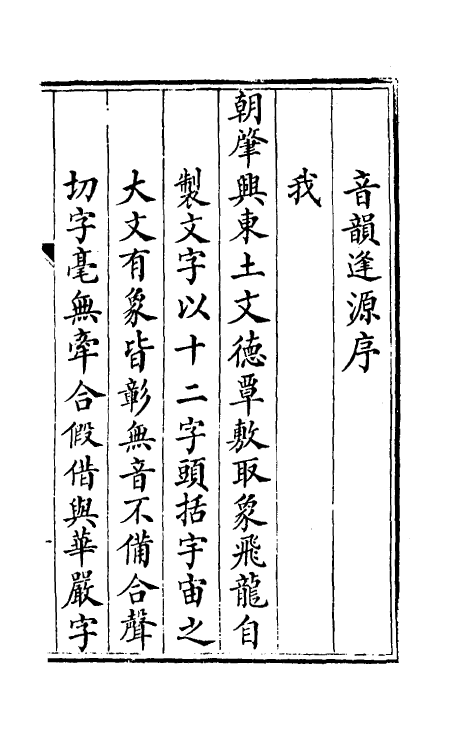 音韻逢源序
我
朝肇興東土文德覃敷取象飛龍自
製文字以十二字頭括宇宙之
大文有象皆彰無音不備合聲
切字毫無牽合假借與華嚴字